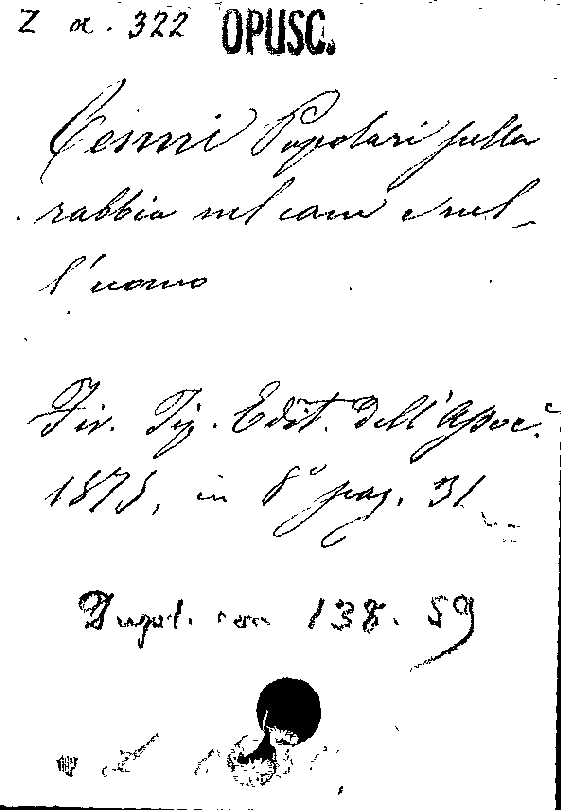 Z α. 322 OPUSC.
Cenni Popolari sulla
rabbia nel cane e nel-
l'uomo
Fir. Tip. Edit. dell'Assoc.e
1875, in 8° pag. 31
Dupl. con 138. 59